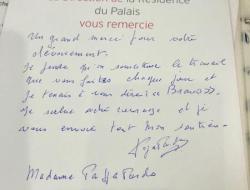 la Direction de la Résidence
du Palais
vous remercie
Un grand merci pour votre
dévouement.
Je pense qu'on the travail
que vous faites chaque jour et
Je tenais à vous dire "Bravo".
Je salue votre courage et je
vous envoie tout mon soutien.
Madame